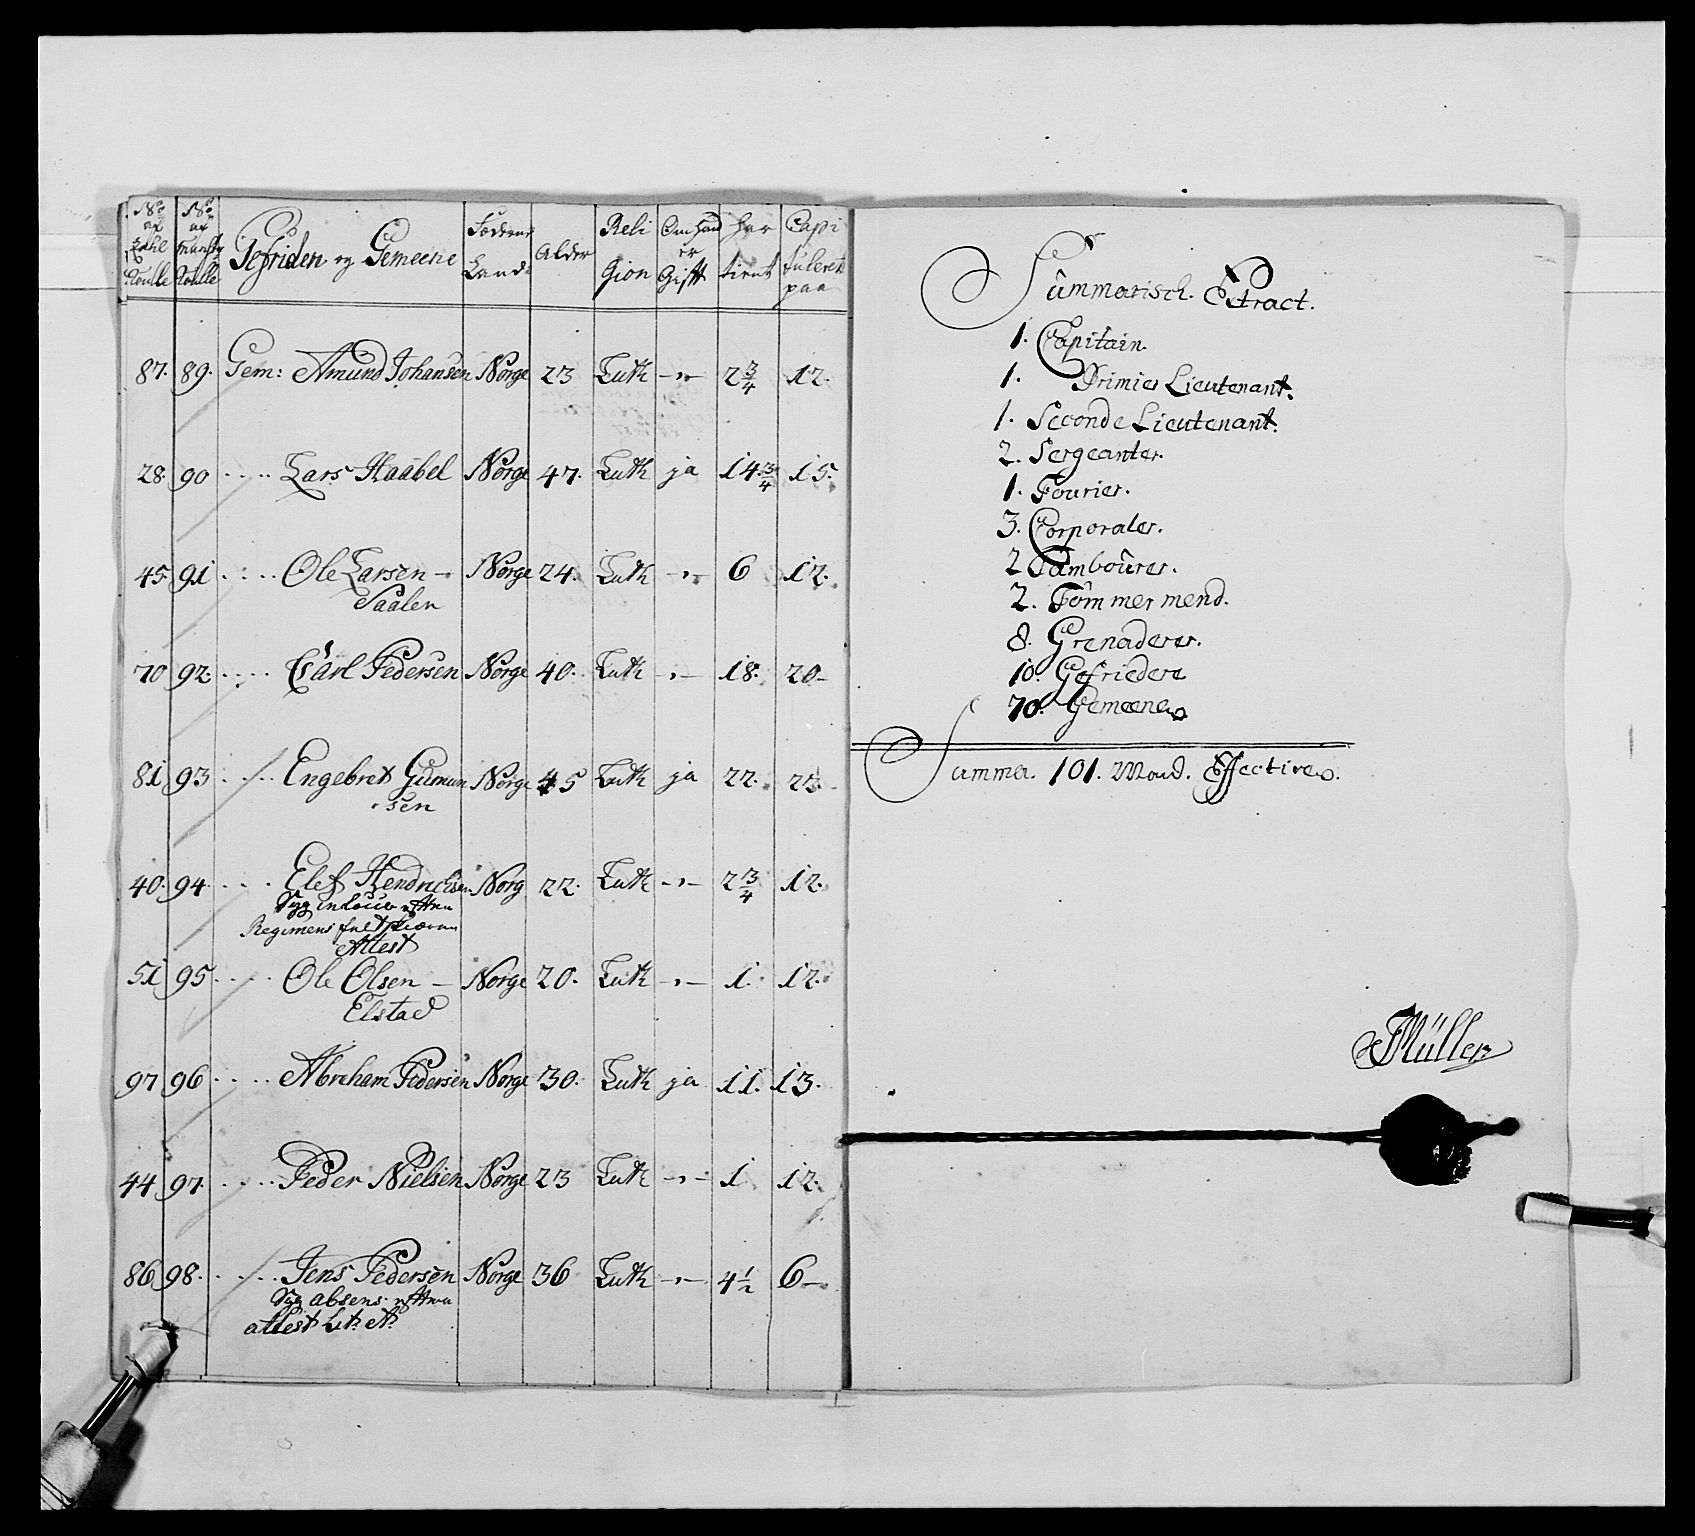 No af Zahl Roulle | No af Munst Roulle | Gefriden og Gemeene | Föderne Land | Alder | Religion | Om hand er Gift | har tient | Capituleret paa
87. 89. Gem: Amund Johansen Norge 23 Luth -"- 2 3/4 12.
28. 90 ..... Lars Haabel Norge 47. Luth ja 14 3/4 15.
45. 91 .... Ole Larsen - Norge 24. Luth -"- 6 12.
Saalen
70 92. .... Carl Pedersen Norge 40. Luth -"- 18. 20-
81 93 .... Engebret Gumun Norge 45 Luth ja 22. 23.
sen
40. 94 .... Elef Hendrichsen Norg 22. Luth -"- 2 3/4 12.
Syg
Regimens
Attest
51 95 .... Ole Olsen - Norge 20. Luth -"- 1. 12.
Elstad
97 96 .... Abreham Pedersen Norge 30. Luth ja 11. 13.
44 97. .... Peder Nielsen Norge 23 Luth -"- 1 12.
86 98. .... Jens Pedersen Norge 36 Luth -"- 4 1/2 6-
Syg absens
attest Lit: A:
Summarisch. Extract.
1. Capitain.
1. Primier Lieutenant.
1. Seconde Lieutenant.
2. Sergeanter.
1. Fourier.
3. Corporaler.
2 Tambourer.
2. Tömmermend.
8. Grenaderer.
10. Gefriedere
70. Gemeene
Summa. 101. Mand. Effective.
Müller